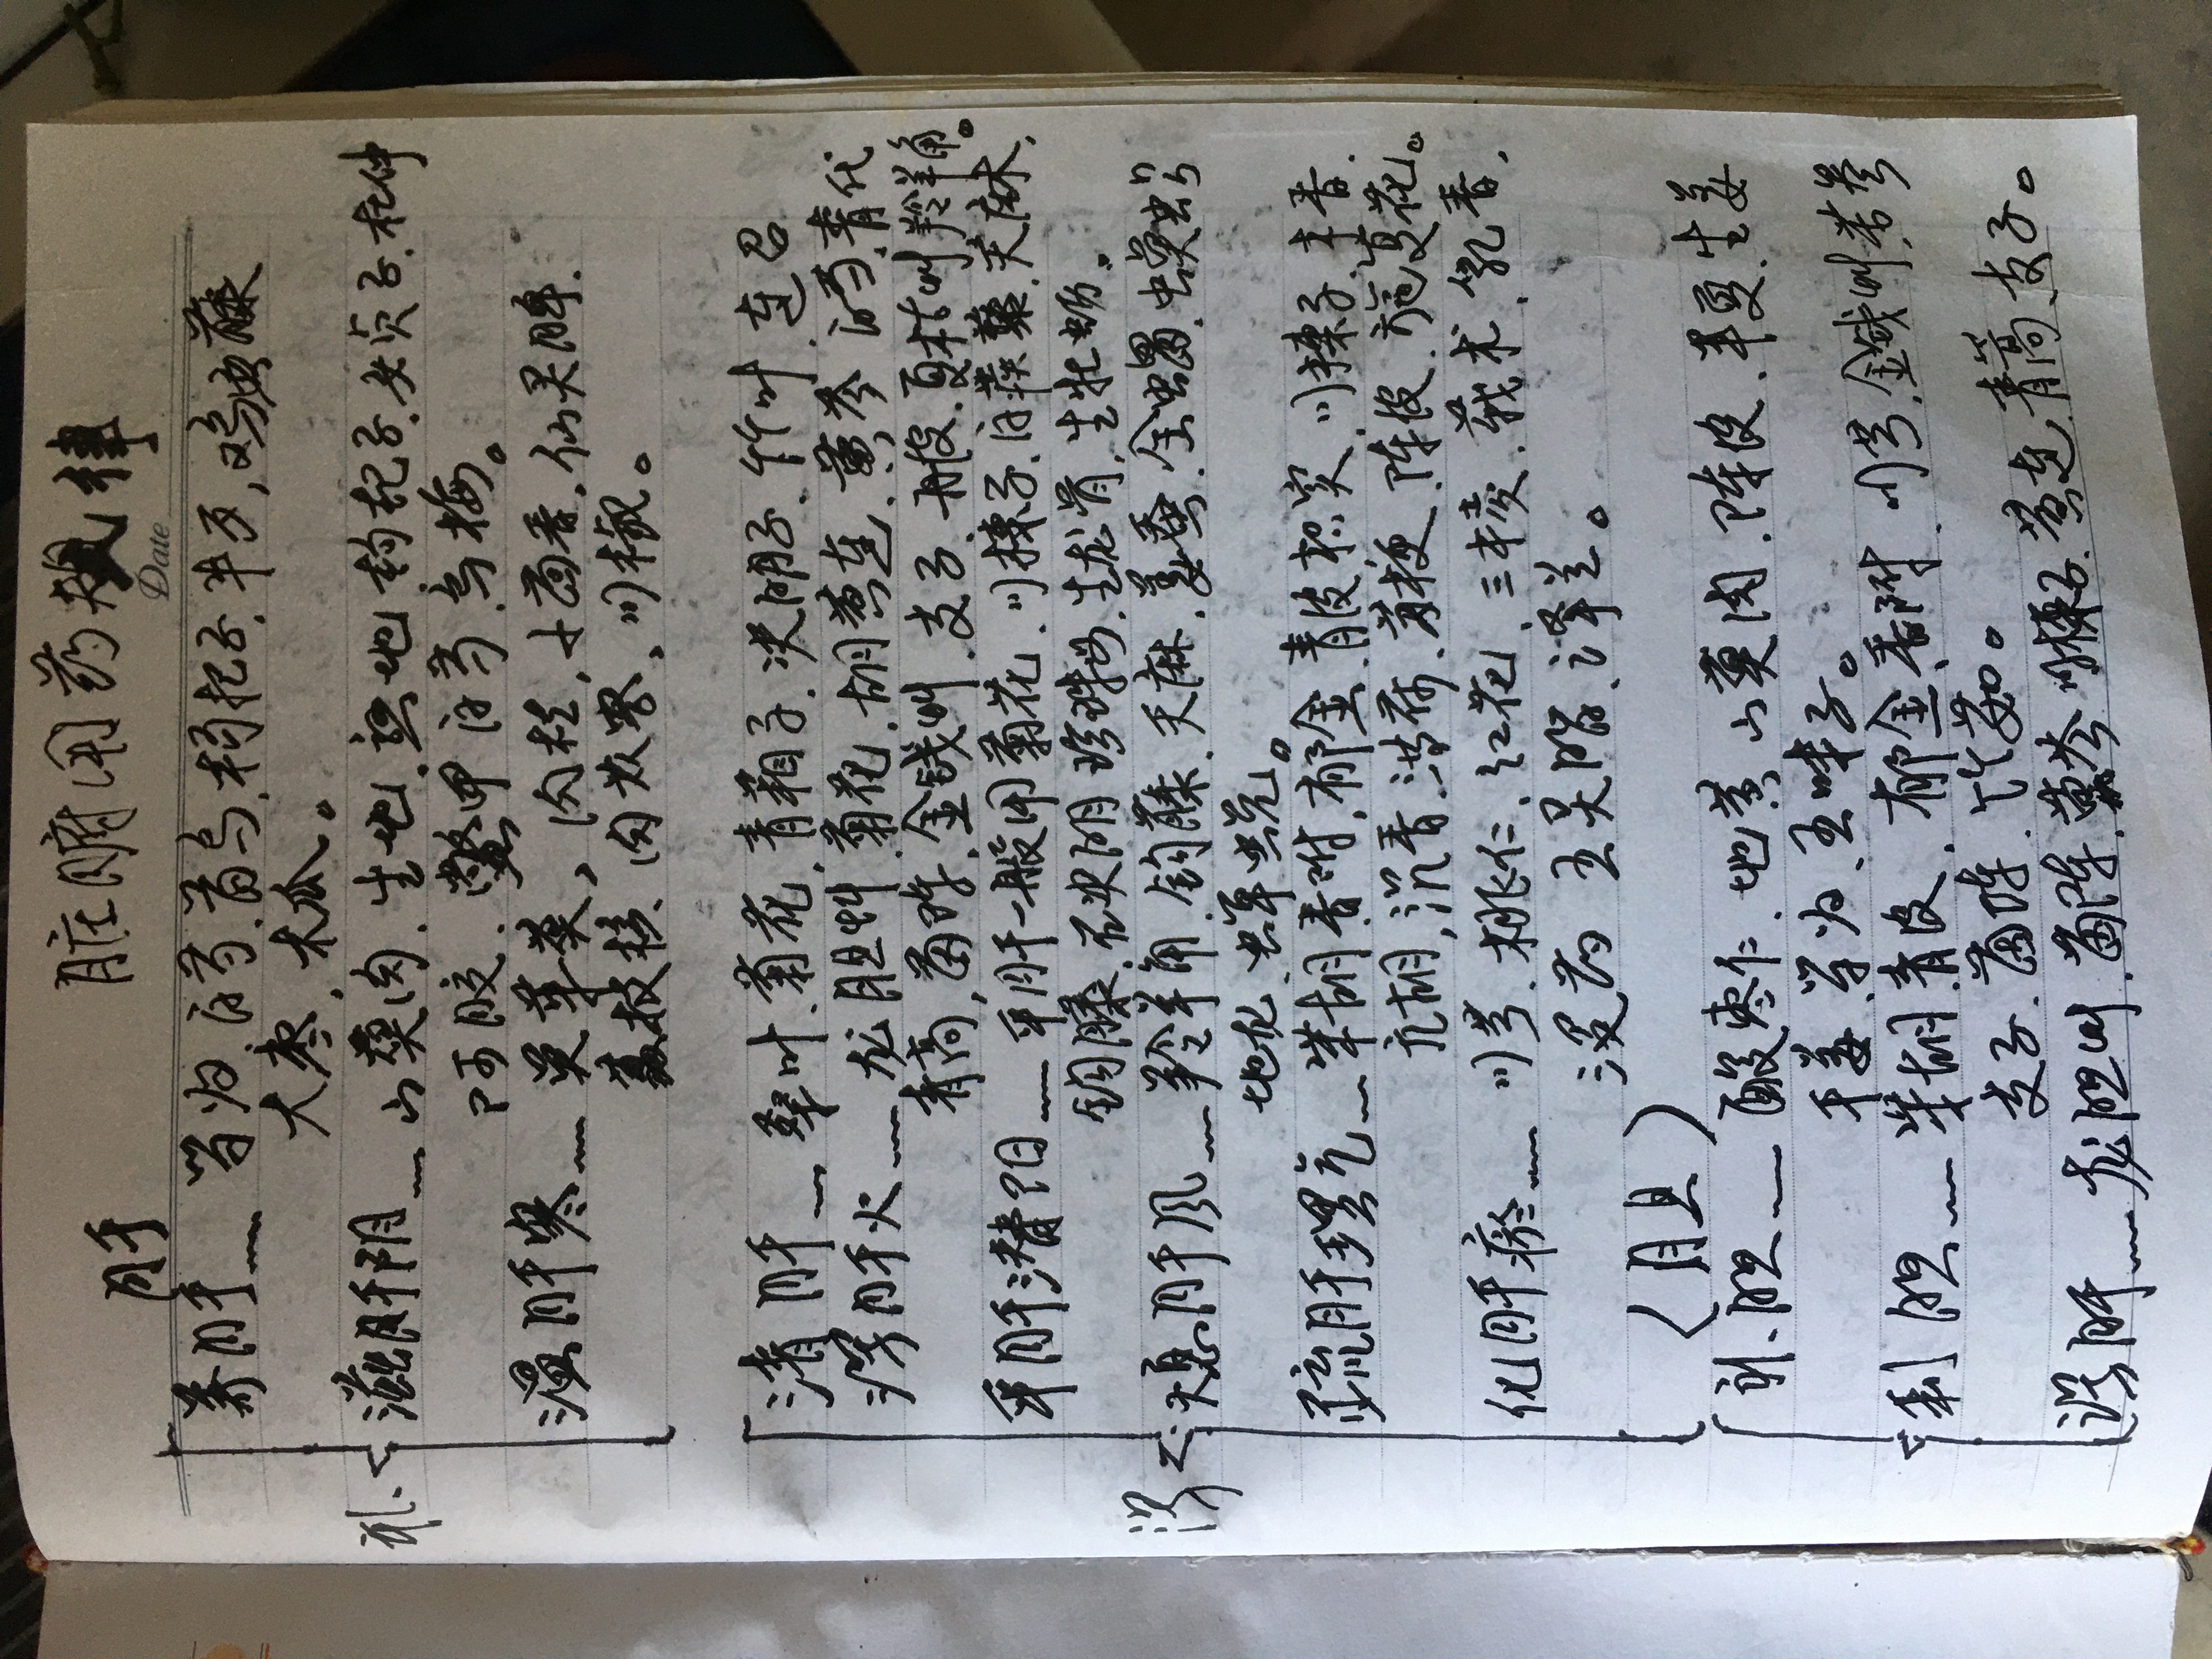 脏腑用药规律
肝
Date
养肝——当归、白芍、首乌、枸杞子、牛夕、鸡血藤
大枣、木瓜。
补
滋肝阴——山萸肉、生地、熟地、枸杞子、女贞子、杜仲
阿胶、鳖甲、白芍、乌梅。
温肝寒——吴茱萸、肉桂、小茴香、仙灵脾、
荔枝核、肉苁蓉、川椒。
清肝——桑叶、菊花、青葙子、决明子、竹叶、连召
泻肝火——龙胆草、菊花、胡黄连、黄芩、白芍、青代
青高、茵陈、金钱草、支子、丹皮、夏枯草、羚羊角。
平肝潜阳——平肝一般用菊花、川楝子、白蒺藜、天麻、
钩藤、石决明、珍珠母、生龙骨、生牡蛎。
泻
熄肝风——羚羊角、钩藤、天麻、姜蚕、全蝎、蜈蚣
地龙、蝉蜕。
疏肝理气——柴胡、香附、郁金、青皮、枳实、川楝子、木香、
元胡、沉香、薄荷、苏梗、陈皮、旋复花。
化肝瘀——川芎、桃仁、红花、三棱、莪术、乳香、
没药、五灵脂、泽兰。
（胆）
补胆——酸枣仁、地黄、山萸肉、陈皮、半夏、生姜
干姜、当归、五味子。
利胆——柴胡、青皮、郁金、香附、川芎、金钱草、苦参
支子、茵陈、竹茹。
泻肝——龙胆草、茵陈、黄芩、川楝子、黄连、青蒿、支子。